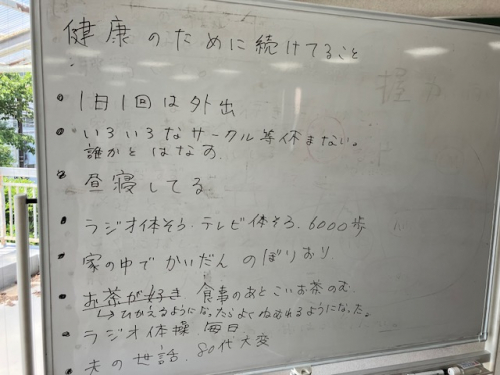 健康のために続けてること
・1日1回は外出
・いろいろなサークル等休まない。
誰かとはなす
・昼寝してる
・ラジオ体そう.テレビ体そう.6000歩
・家の中でかいだんのぼりおり
・お茶が好き 食事のあとこいお茶のむ
↳ひかえるようになったらよくねむれるようになった。
・ラジオ体操 毎日
・夫の世話.80代大変